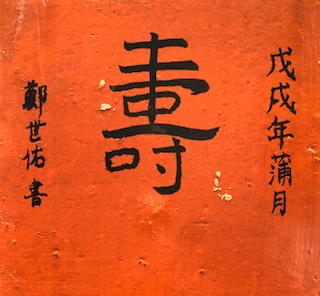 戊戌年蒲月
壽
鄭世佑書